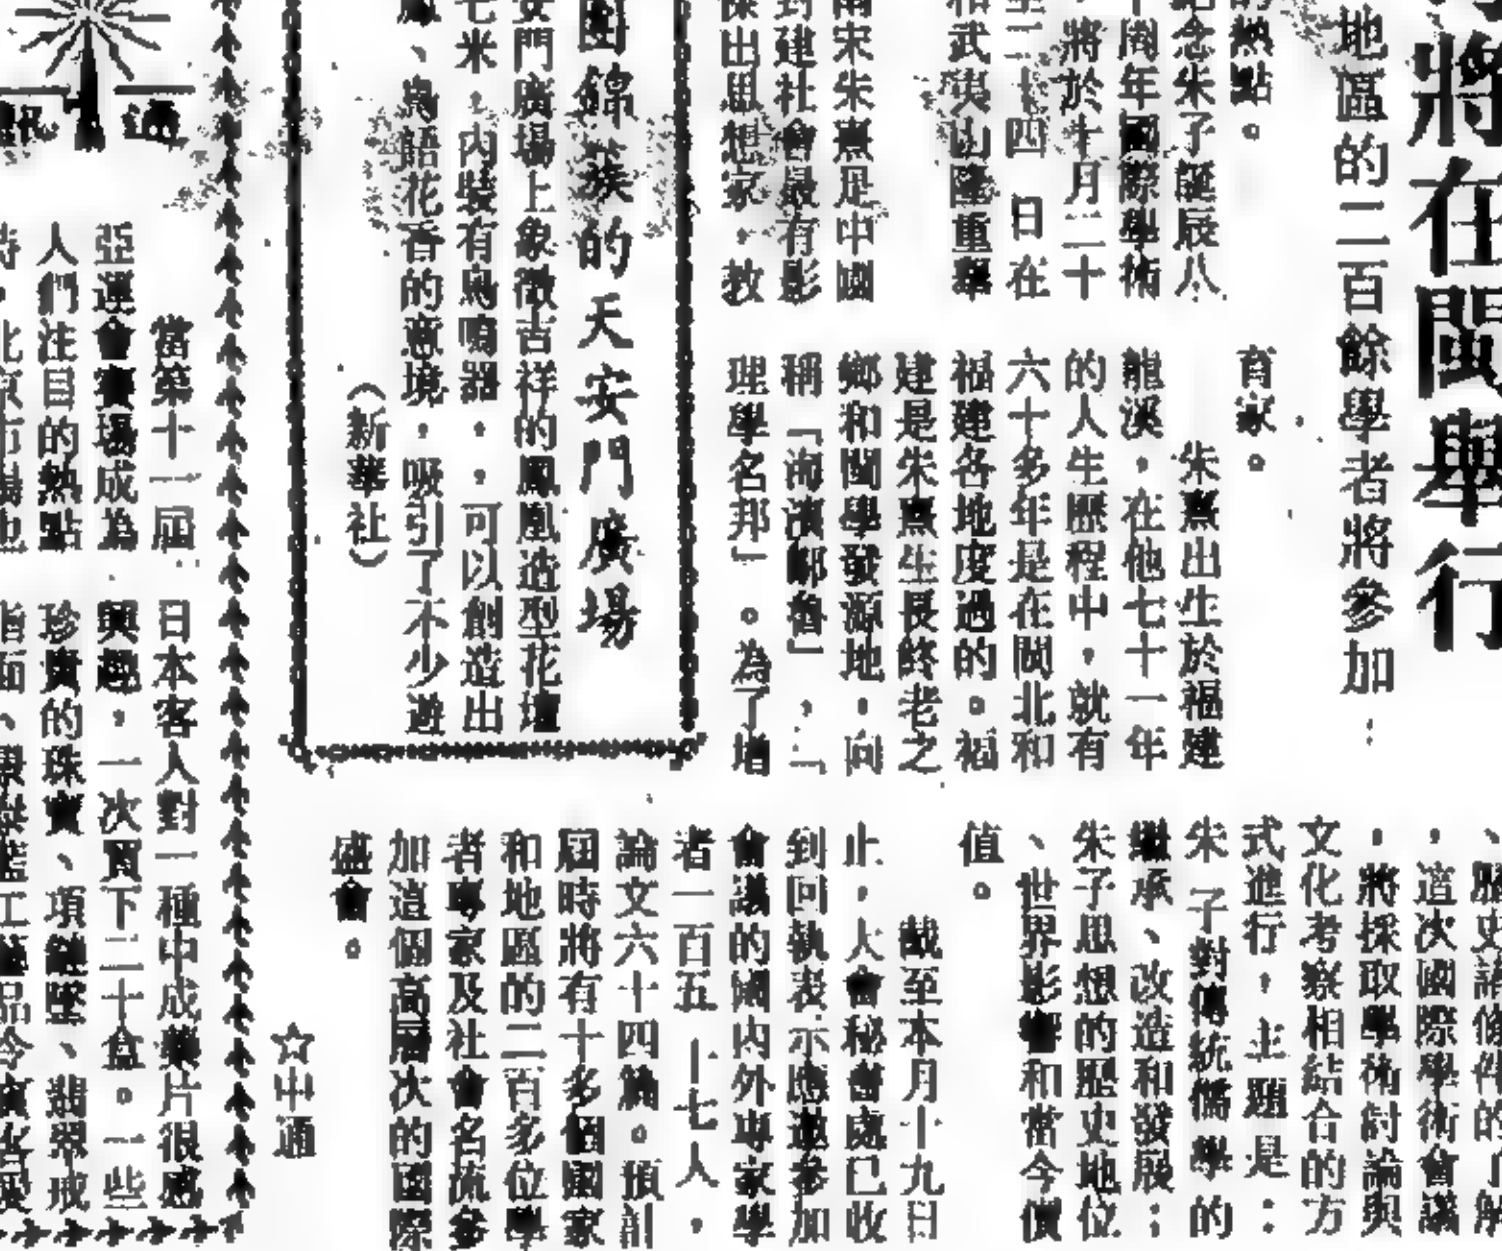 將在閩舉行
地區的二百餘學者將參加
熱點。
念朱子誕辰八
周年國際學術
將於十月二十
二十四日在
和武夷山隆重舉
南宋朱熹是中國
對建社會最有影
傑出思想家、教
育家。
朱熹出生於福建
龍溪，在他七十一年
的人生歷程中，就有
六十多年是在閩北和
福建各地度過的。福
建是朱熹生長終老之
鄉和閩學發源地，向
稱「海濱鄒魯」，「
理學名邦」。為了增
歷史諸條件的了解
，這次國際學術會議
，將採取學術討論與
文化考察相結合的方
式進行，主題是：
朱子對傳統儒學的
繼承、改造和發展；
朱子思想的歷史地位
、世界影響和當今價
值。
截至本月十九日
止，大會秘書處已收
到回執表示應邀參加
會議的國內外專家學
者一百五十七人，
論文六十四篇。預計
屆時將有十多個國家
和地區的二百多位學
者專家及社會名流參
加這個高層次的國際
盛會。
☆中通
團錦簇的天安門廣場
安門廣場上象徵吉祥的鳳凰造型花壇
七米，內裝有鳥鳴器，，可以創造出
鳳、鳥語花香的意境，吸引了不少遊
（新華社）
通訊
當第十一屆
亞運會賽場成為
人們注目的熱點
時，北京市場也
日本客人對一種中成藥片很感
興趣，一次買下二十盒。一些
珍貴的珠寶、項鏈墜、翡翠戒